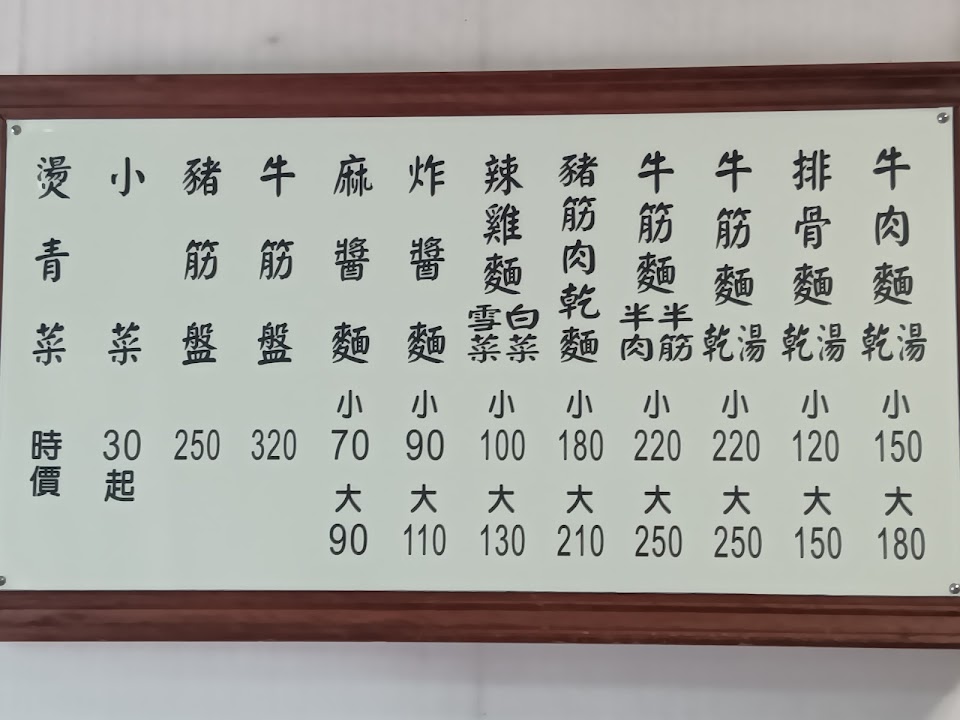 牛肉麵 乾湯 小150 大180
排骨麵 乾湯 小120 大150
牛筋麵 乾湯 小220 大250
牛筋麵 半肉半筋 小220 大250
豬筋肉乾麵 小180 大210
辣雞麵 雪菜白菜 小100 大130
炸醬麵 小90 大110
麻醬麵 小70 大90
牛筋盤 320
豬筋盤 250
小菜 30起
燙青菜 時價